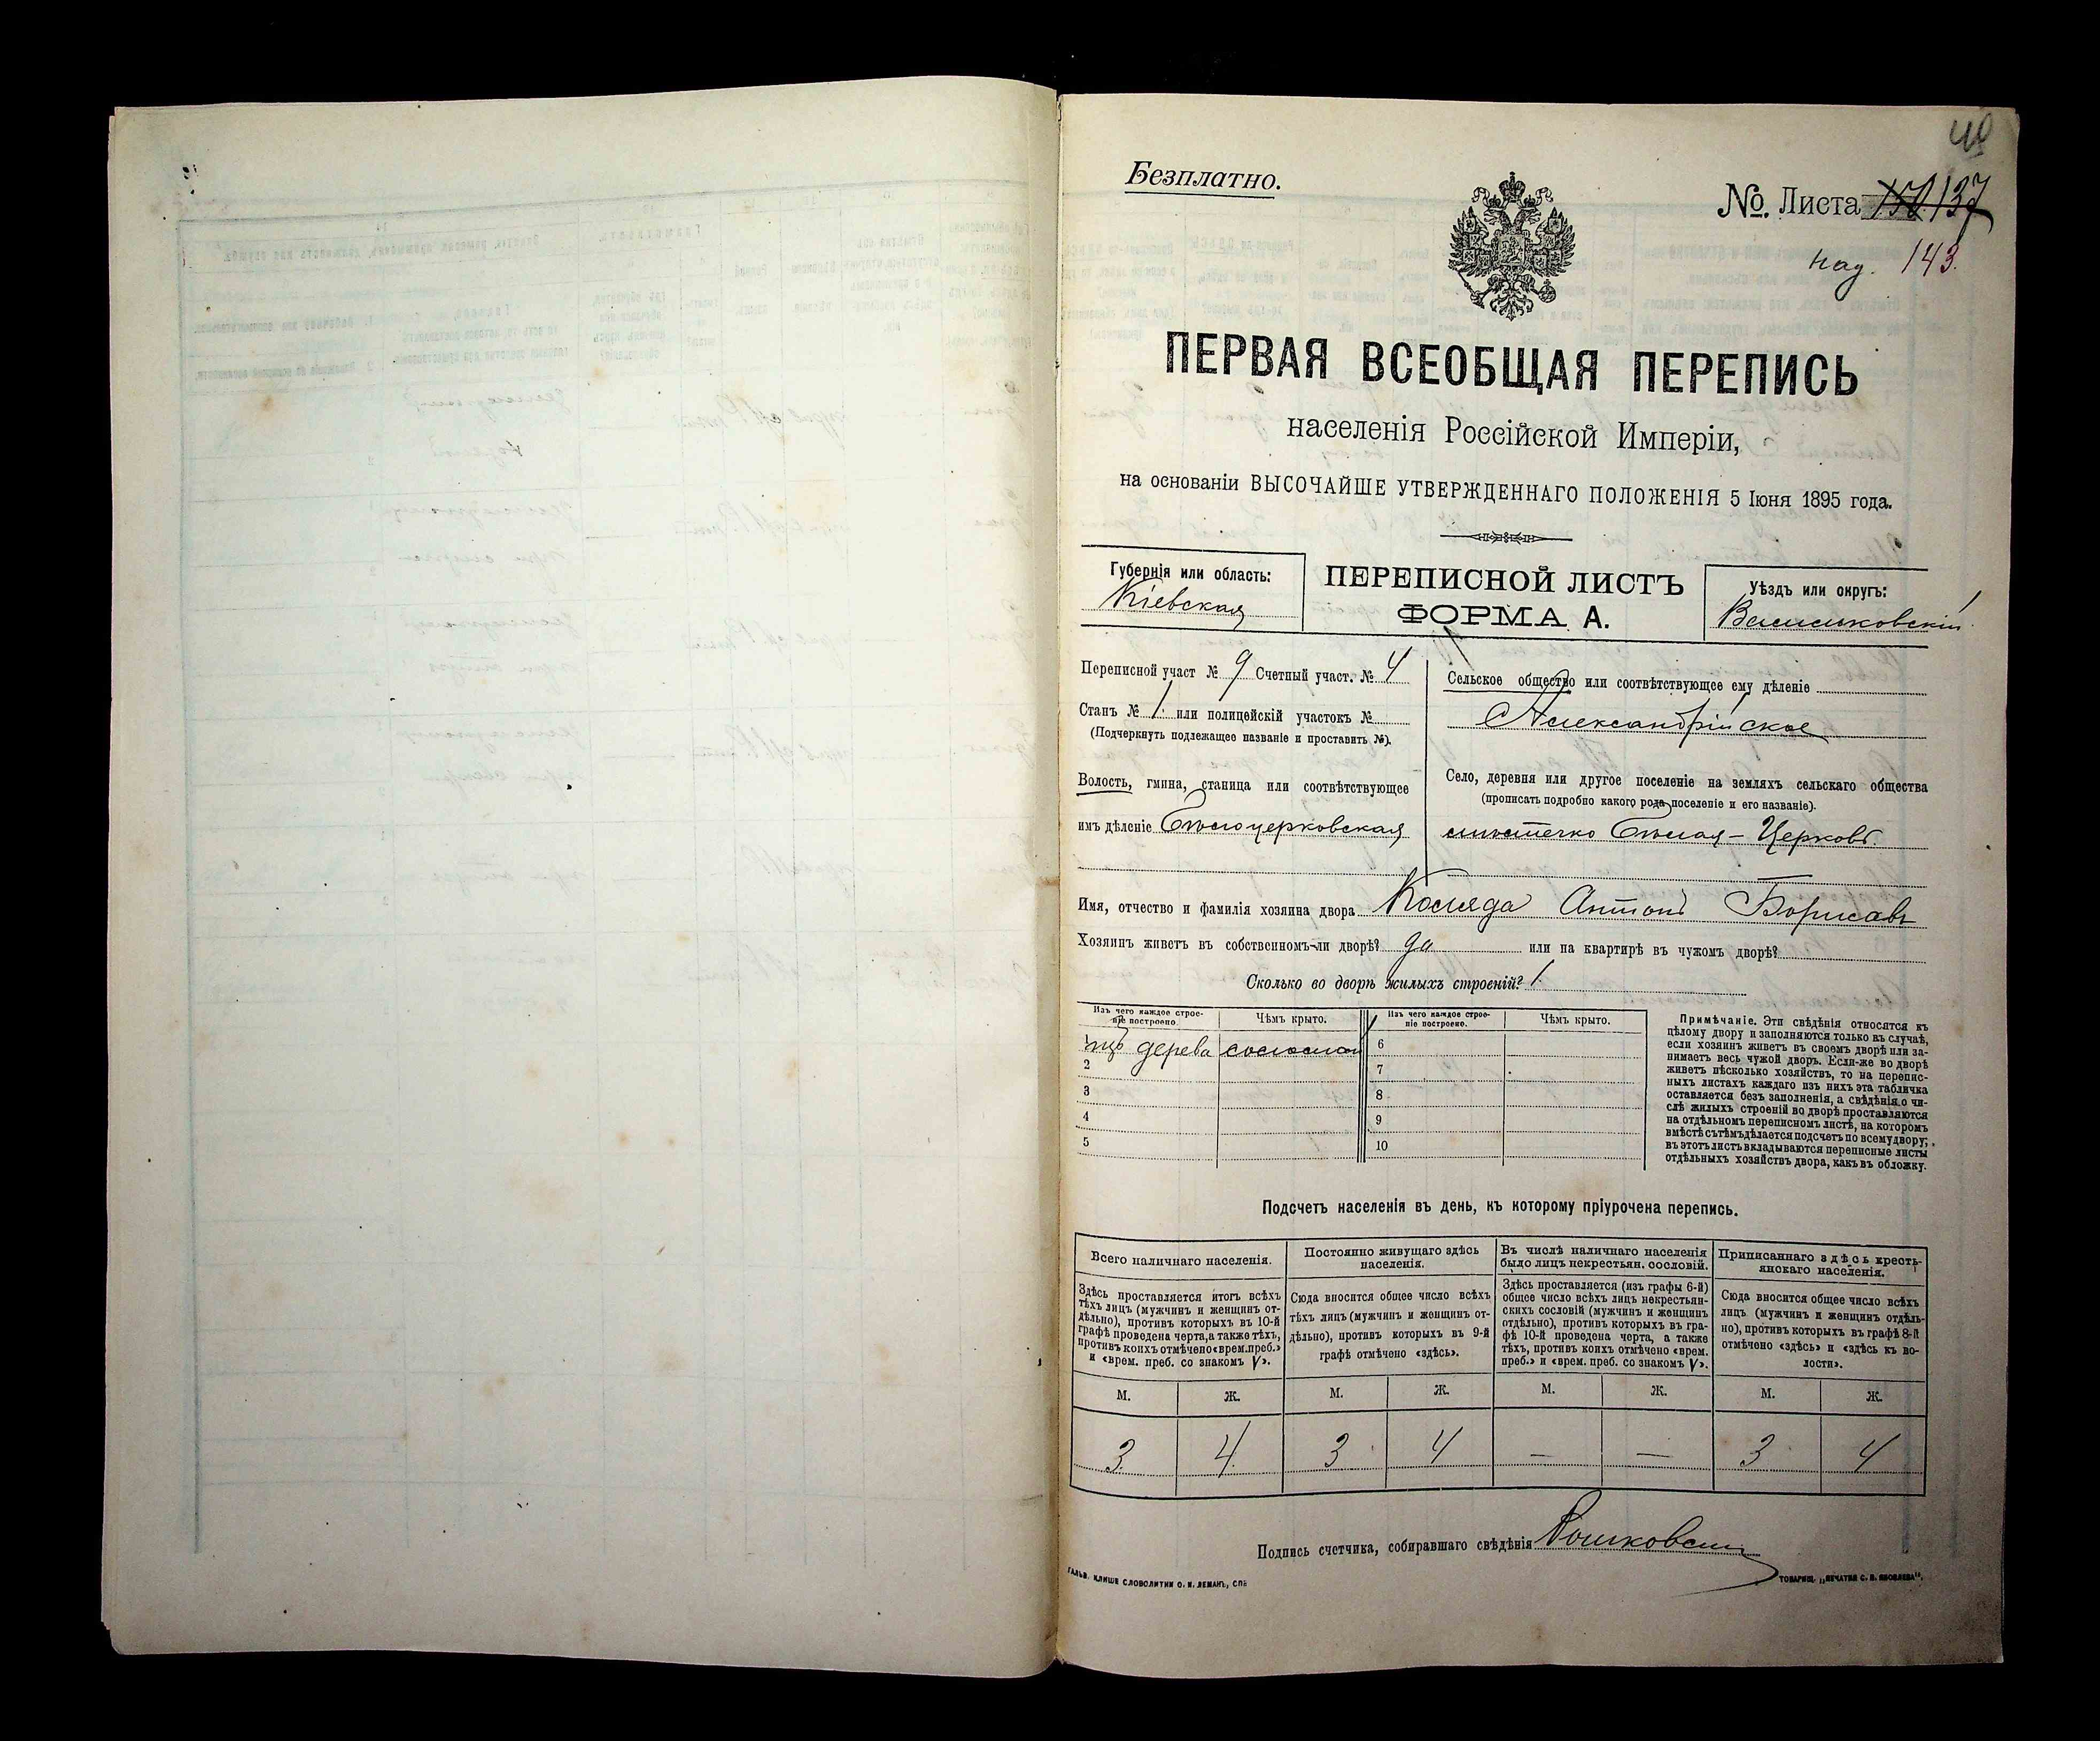 40
Безплатно.
№. Листа 137
над. 143.
ПЕРВАЯ ВСЕОБЩАЯ ПЕРЕПИСЬ
населенія Россійской Имперіи,
на основаніи ВЫСОЧАЙШЕ УТВЕРЖДЕННАГО ПОЛОЖЕНІЯ 5 Іюня 1895 года.
Губернія или область:
Кіевская
ПЕРЕПИСНОЙ ЛИСТЪ
ФОРМА А.
Уѣздъ или округъ:
Васильковскій
Переписной участ № 9 Счетный участ. № 4
Станъ № 1. или полицейскій участокъ №
(Подчеркнуть подлежащее названіе и проставить №).
Волость, гмина, станица или соотвѣтствующее
имъ дѣленіе Бѣлоцерковская
Сельское общество или соотвѣтствующее ему дѣленіе
Александрійское
Село, деревня или другое поселеніе на земляхъ сельскаго общества
(прописать подробно какого рода поселеніе и его названіе).
мѣстечко Бѣлая-Церковь.
Имя, отчество и фамилія хозяина двора Коляда Антонъ Борисовъ
Хозяинъ живетъ въ собственномъ-ли дворѣ? да или на квартирѣ въ чужомъ дворѣ?
Сколько во дворѣ жилыхъ строеній? 1.
Изъ чего каждое строе-
ніе построено.
Чѣмъ крыто.
Изъ чего каждое строе-
ніе построено.
Чѣмъ крыто.
изъ дерева соломой
6
2
7
3
8
4
9
5
10
Примѣчаніе. Эти свѣдѣнія относятся къ
цѣлому двору и заполняются только въ случаѣ,
если хозяинъ живетъ въ своемъ дворѣ или за-
нимаетъ весь чужой дворъ. Если-же во дворѣ
живетъ нѣсколько хозяйствъ, то на перепис-
ныхъ листахъ каждаго изъ нихъ эта табличка
оставляется безъ заполненія, а свѣдѣнія о чи-
слѣ жилыхъ строеній во дворѣ проставляются
на отдѣльномъ переписномъ листѣ, на которомъ
вмѣстѣ съ тѣмъ дѣлается подсчетъ по всему двору;
въ этотъ листъ вкладываются переписные листы
отдѣльныхъ хозяйствъ двора, какъ въ обложку.
Подсчетъ населенія въ день, къ которому пріурочена перепись.
Всего наличнаго населенія.
Здѣсь проставляется итогъ всѣхъ
тѣхъ лицъ (мужчинъ и женщинъ от-
дѣльно), противъ которыхъ въ 10-й
графѣ проведена черта, а также тѣхъ,
противъ коихъ отмѣчено «врем. преб.»
и «врем. преб. со знакомъ V».
Постоянно живущаго здѣсь
населенія.
Сюда вносится общее число всѣхъ
тѣхъ лицъ (мужчинъ и женщинъ от-
дѣльно), противъ которыхъ въ 9-й
графѣ отмѣчено «здѣсь».
Въ числѣ наличнаго населенія
было лицъ некрестьян. сословій.
Здѣсь проставляется (изъ графы 6-й)
общее число всѣхъ лицъ некрестьян-
скихъ сословій (мужчинъ и женщинъ
отдѣльно), противъ которыхъ въ гра-
фѣ 10-й проведена черта, а также
тѣхъ, противъ коихъ отмѣчено «врем.
преб.» и «врем. преб. со знакомъ V».
Приписаннаго здѣсь кресть-
янскаго населенія.
Сюда вносится общее число всѣхъ
лицъ (мужчинъ и женщинъ отдѣль-
но), противъ которыхъ въ графѣ 8-й
отмѣчено «здѣсь» и «здѣсь къ во-
лости».
М. Ж. М. Ж. М. Ж. М. Ж.
3 4 3 4 — — 3 4
Подпись счетчика, собиравшаго свѣдѣнія
ГАЛЬВ. КЛИШЕ СЛОВОЛИТНИ О. И. ЛЕМАНЪ, СПБ
ТОВАРИЩ. „ПЕЧАТНЯ С. П. ЯКОВЛЕВА".